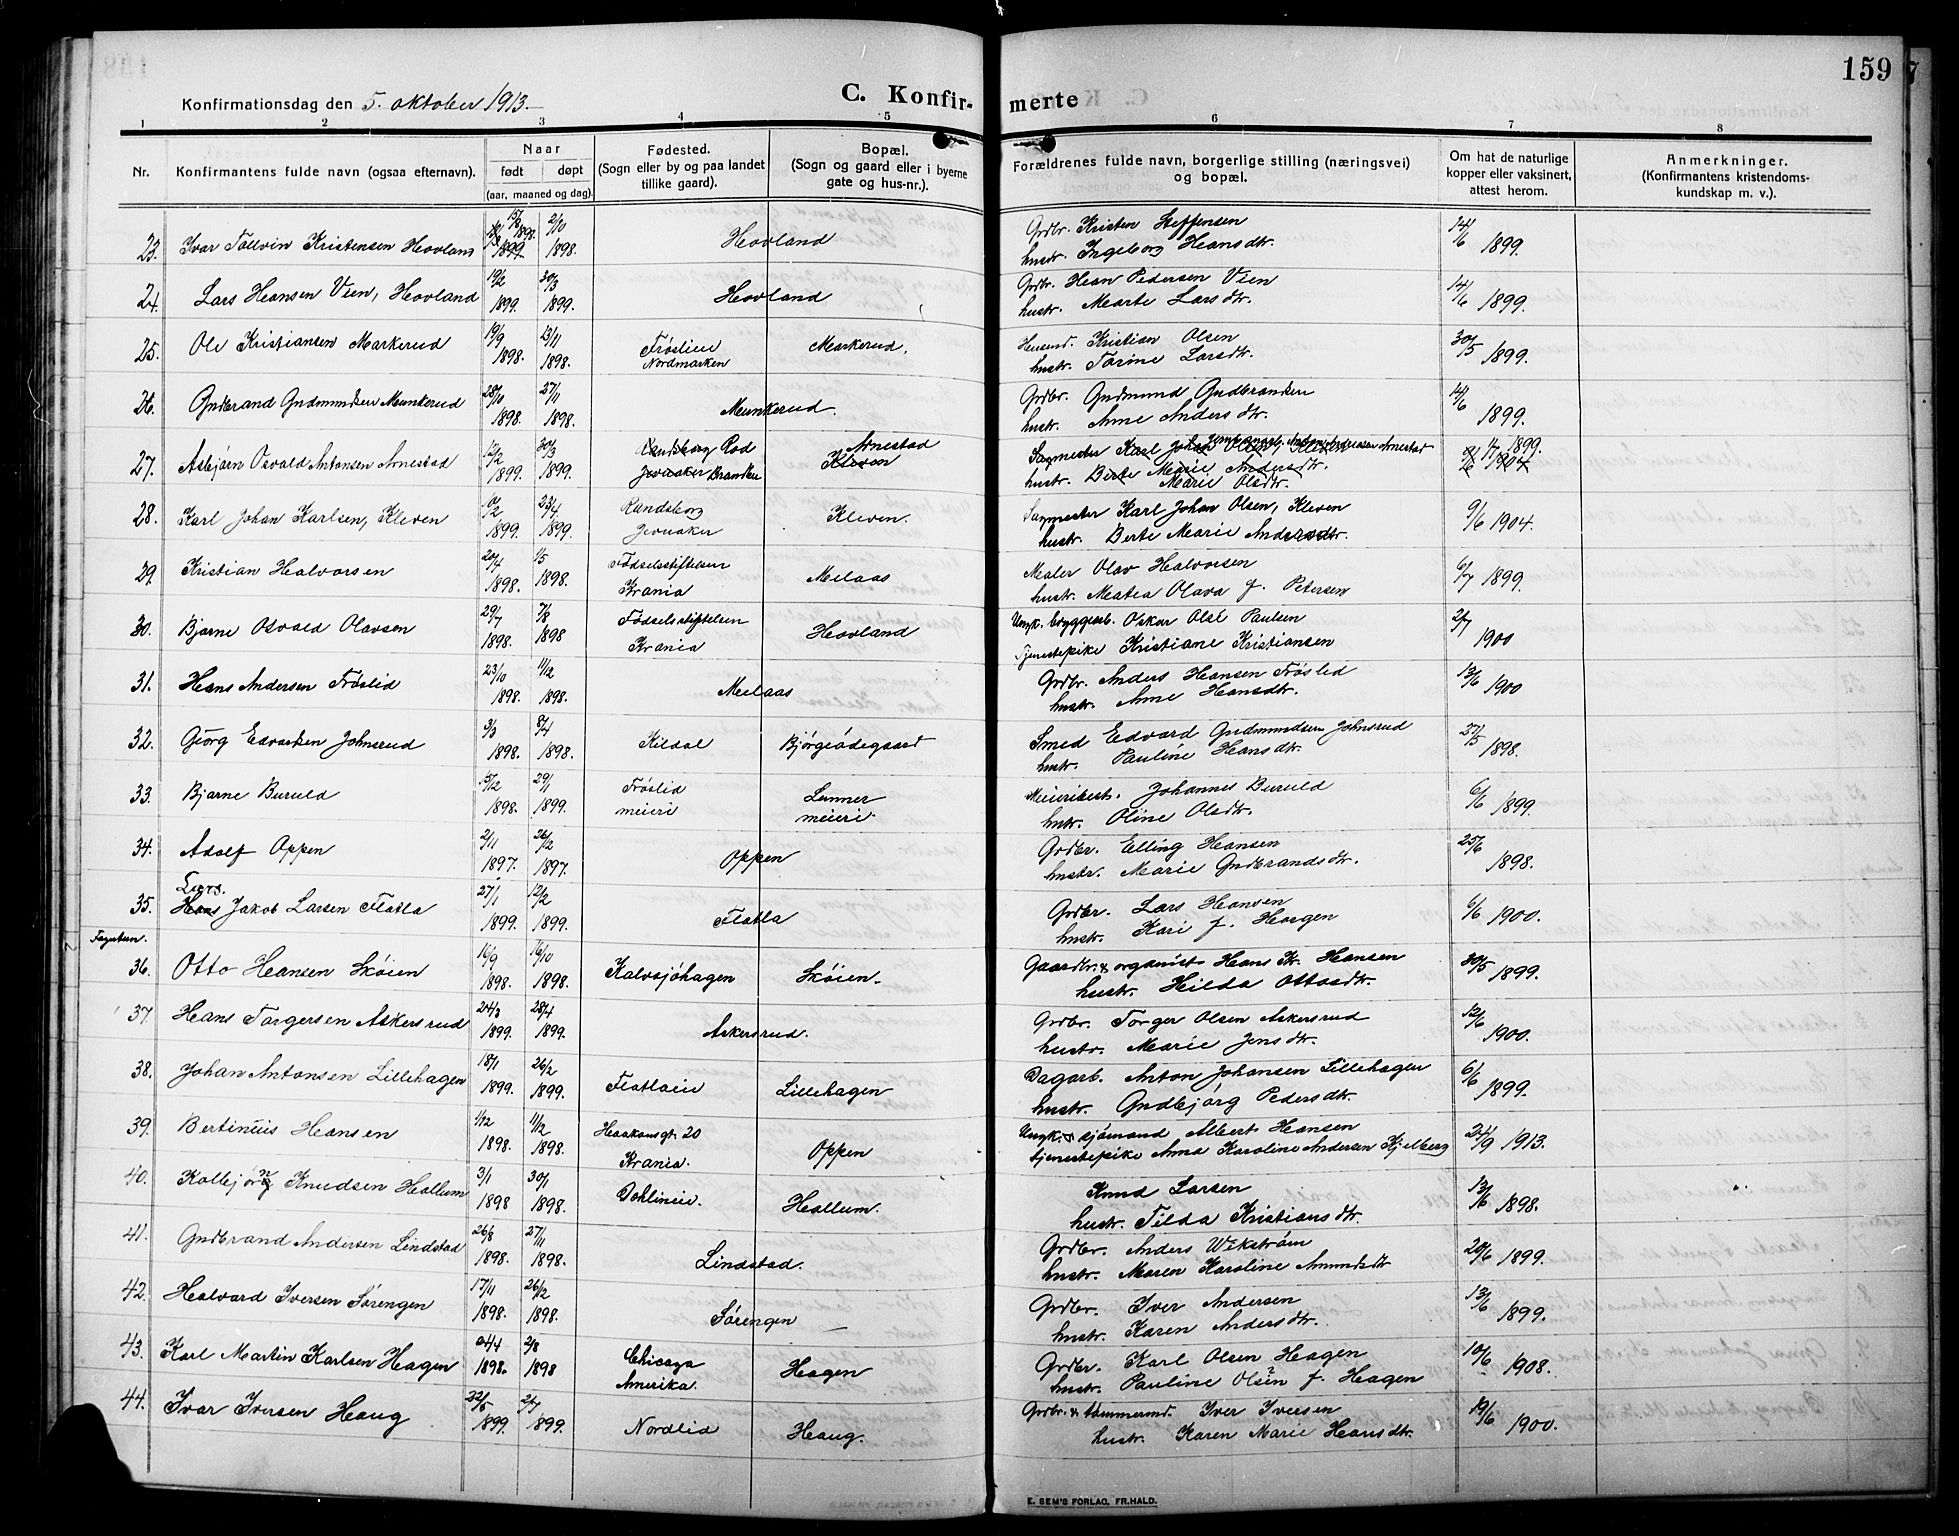 159
Konfirmationsdag den 5. oktober 1913.
C. Konfirmerte
1 2 3 4 5 6 7 8
Nr.
Konfirmantens fulde navn (ogsaa efternavn).
Naar
født døpt
(aar, maaned og dag).
Fødested.
(Sogn eller by og paa landet
tillike gaard).
Bopæl.
(Sogn og gaard eller i byerne
gate og hus-nr.).
Forældrenes fulde navn, borgerlige stilling (næringsvei)
og bopæl.
Om hat de naturlige
kopper eller vaksinert,
attest herom.
Anmerkninger.
(Konfirmantens kristendoms-
kundskap m. v.).
23. Ivar Tollvin Kristensen Hovland 1898. 2/10 1898. Hovland Grdbr. Kristen Steffensen
hustr. Ingeborg Hansdtr. 14/6 1899.
24. Lars Hansen Vien, Hovland 19/2 1899. 30/3 1899. Hovland Grdbr. Han Pedersen Vien
hustr. Marte Larsdtr. 14/6 1899.
25. Ole Kristiansen Markerud 19/9 1898. 13/11 1898. Frøslien Nordmarken Markerud. Husmd. Kristian Olsen
hustr. Torine Larsdtr. 30/5 1899.
26. Gudbrand Gudmundsen Munkerud 28/10 1898. 27/11 1898. Munkerud. Grdbr. Gudmund Gudbrandsen
hustr. Anne Andersdtr. 14/6 1899.
27. Asbjørn Osvald Antonsen Arnestad 12/2 1899. 30/3 1899. Randsborg Rod Jevnaker Branbu Arnestad Kleven Sagmester Karl Johan Olsen, Kleven Arnestad
hustr. Berte Marie Andersdtr.
Marie Olsdtr. 1899. 1904.
28. Karl Johan Karlsen, Kleven 1899. 23/4 1899. Randsborg Jevnaker Kleven. Sagmester Karl Johan Olsen, Kleven
hustr. Berte Marie Andersdtr. 9/6 1904.
29. Kristian Halvorsen 20/4 1898. 1/5 1898. Fødselsstiftelsen Krania Melaas Maler Olav Halvorsen
hustr. Matea Olava f. Petersen 6/7 1899.
30. Bjarne Osvald Olavsen 29/7 1898. 7/8 1898 Fødselsstiftelsen Krania Hovland Ungk. bryggeab. Oskar Olsé Paulsen
Tjenestepike Kristiane Kristiansen 2/7 1900
31. Hans Andersen Frøslid 23/10 1898. 11/12 1898. Melaas Grdbr. Anders Hansen Frøslid
hustr. Anne Hansdtr. 13/6 1900
32. Georg Edvardsen Johnsrud 3/3 1898. 8/4 1898. Kildal Bjørgeødegaard Smed Edvard Gudmundsen Johnsrud
hustr. Pauline Hansdtr. 27/5 1898.
33. Bjarne Buruld 15/12 1898. 29/1 1899. Frøslid meieri Lunner meieri Meieribest. Johannes Buruld
hustr. Oline Olsdtr. 6/6 1899.
34. Adolf Oppen 2/11 1897. 26/12 1897. Oppen Grdbr. Elling Hansen
hustr. Marie Gudbrandsdtr. 25/6 1898.
35. Lars. Hans Jakob Larsen Flatla 27/1 1899. 12/2 1899. Flatla Grdbr. Lars Hansen
hustr. Kari f. Hagen 6/6 1900.
36. Otto Hansen Skøien 16/9 1898. 16/10 1898. Kalvsjøhagen Skøien. Gaardbr. & organist Hans Kr. Hansen
hustr. Hilda Ottosdtr. 30/5 1899.
37. Hans Torgersen Askersrud 24/3 1899. 28/4 1899. Askersrud. Grdbr. Torger Olsen Askersrud
hustr. Marie Jensdtr. 12/6 1900.
38. Johan Antonsen Lillehagen 18/1 1899. 26/2 1899. Flatlaeie Lillehagen Dagarb. Anton Johansen Lillehagen
hustr. Gudbjørg Pedersdtr. 6/6 1899.
39. Bertinius Hansen 1/12 1898. 11/12 1898. Haakonsgt. 20 Krania. Oppen Ungk. sjømand Albert Hansen
tjenestepike Anna Karoline Andersen Kjelberg 24/9 1913.
40. Kolbjørn Knudsen Hallum 3/1 1898 30/1 1898. Dehlineie. Hallum. Knud Larsen
hustr. Tilda Kristiansdtr. 13/6 1898.
41. Gudbrand Andersen Lindstad 26/8 1898. 27/11 1898. Lindstad. Grdbr. Anders Wekstrøm
hustr. Maren Karoline Amundsdtr 20/6 1899.
42. Halvard Iversen Sørengen 17/11 1898. 26/12 1898. Sørengen Grdbr. Iver Andersen
hustr. Karen Andersdtr. 13/6 1899.
43. Karl Martin Karlsen Hagen 24/4 1898. 2/8 1898 Chicago Amerika. Hagen Grdbr. Karl Olsen Hagen
hustr. Pauline Olsen f. Hagen 10/6 1908.
44. Ivar Iversen Haug 22/5 1899. 2/7 1899. Nordlid Haug. Grdbr. & tømmermd. Iver Iversen
hustr. Karen Marie Hansdtr. 19/6 1900.
E. SEM'S FORLAG, FR.HALD.